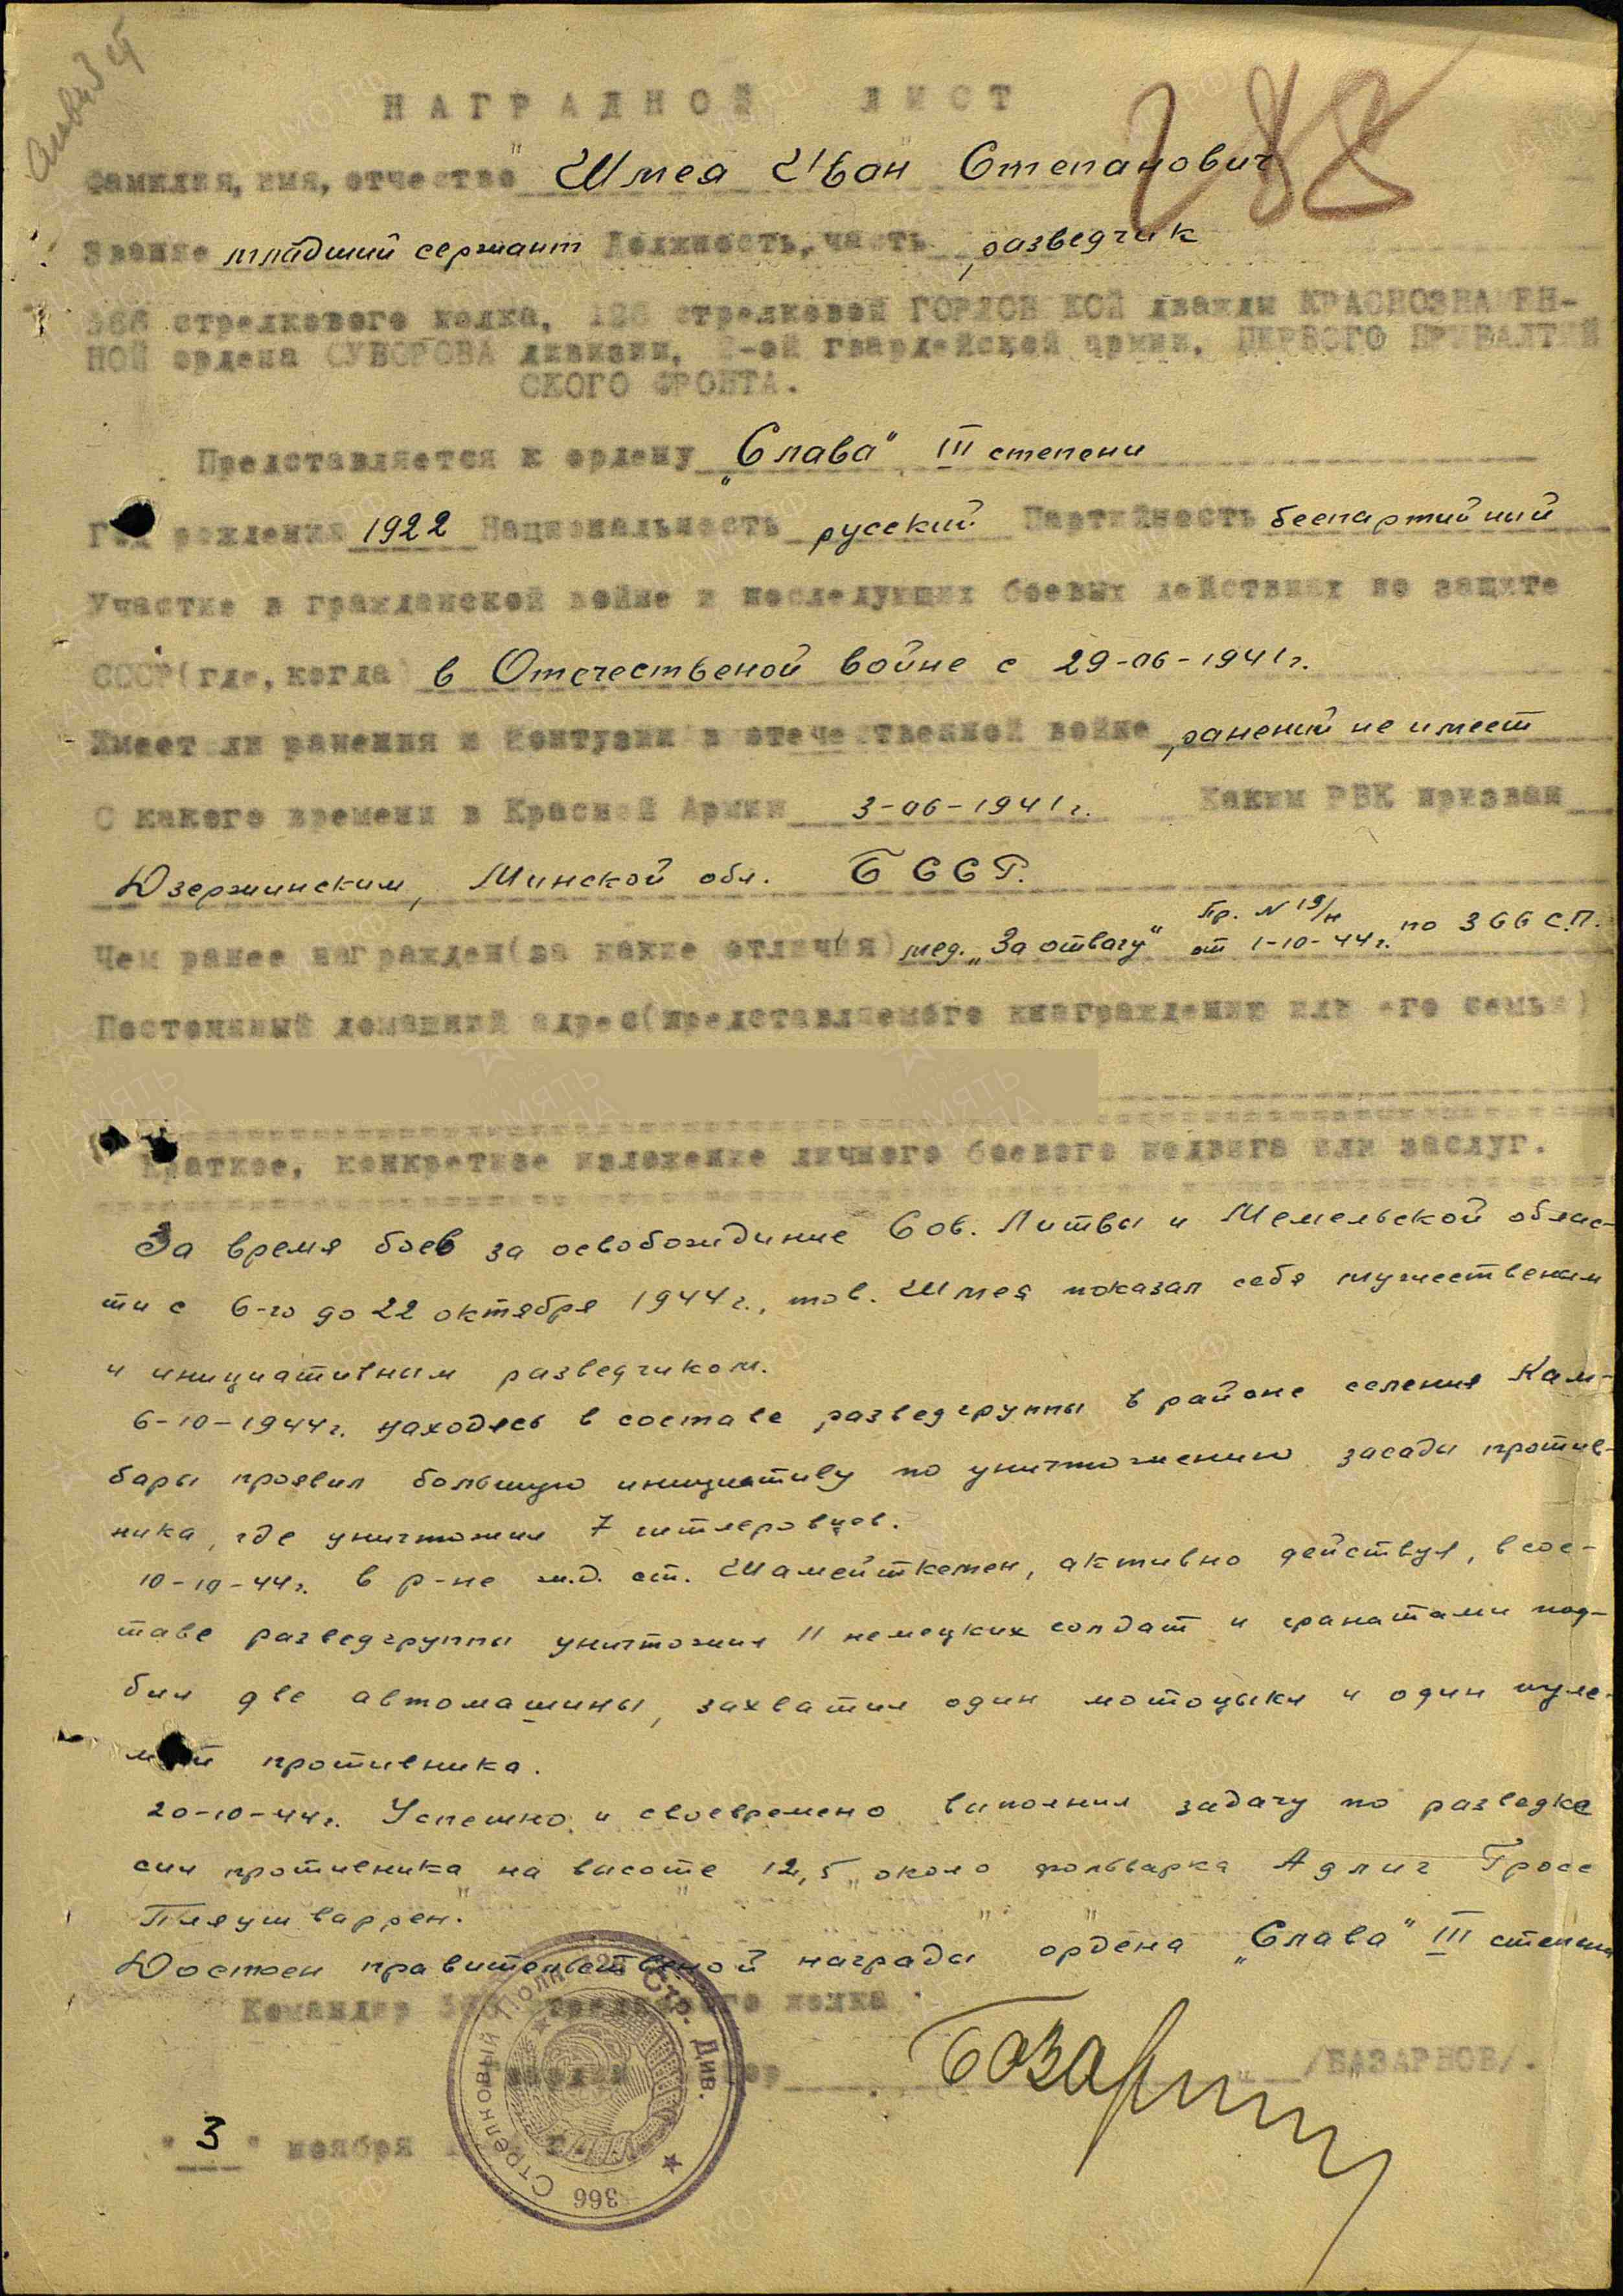 НАГРАДНОЙ ЛИСТ
288
Фамилия, имя, отчество Шмея Иван Степанович
Звание младший сержант Должность, часть разведчик
366 стрелкового полка, 126 стрелковой ГОРЛОВ КОЙ дважды КРАСНОЗНАМЕН-
НОЙ ордена СУВОРОВА дивизии, 2-ой гвардейской армии, ПЕРВОГО ПРИБАЛТИЙ
СКОГО ФРОНТА.
Представляется к ордену „Слава" III степени
Год рождения 1922 Национальность русский Партийность беспартийний
Участие в гражданской войне и последующих боевых действиях по защите
СССР(где, когда) в Отечественой войне с 29-06-1941г.
Имеет ли ранения и контузии в отечественной войне ранений не имеет
С какого времени в Красной Армии 3-06-1941г. Каким РВК призван
Дзержинским, Минской обл. БССР.
Чем ранее награжден(за какие отличия) мед. „За отвагу" Пр. N 19/н от 1-10-44г. по 366 С.П.
Постоянный домашний адрес(представляемого кнаграждению или его семьи)
Краткое, конкретное изложение личного боевого подвига или заслуг.
За время боев за освобождиние Сов. Литвы и Мемельской облас-
ти с 6-го до 22 октября 1944г., тов. Шмея показал себя мужественым
и инициативным разведчиком.
6-10-1944г. находясь в составе разведгруппы в районе селения Кам-
бары проявил большую инициативу по уничтожению засады против-
ника, где уничтожил 7 гитлеровцев.
10-10-44г. в р-не ж.д. ст. Шамейткемен, активно действуя, в сос-
таве разведгруппы уничтожил 11 немецких солдат и гранатами под-
бил две автомашины, захватил один мотоцыкл и один пуле-
мет противника.
20-10-44г. Успешно и своевремено выполнил задачу по разведке
сил противника на высоте 12,5 около фольварка Адлиг Гросс
Пляушваррен.
Достоен правительственой награды ордена „Слава" III степени
Командир 366 стрелкового полка
Гвардии майор /БАЗАРНОВ/.
Стрелковый Полк Стр. Див. 366
"3" ноября г.